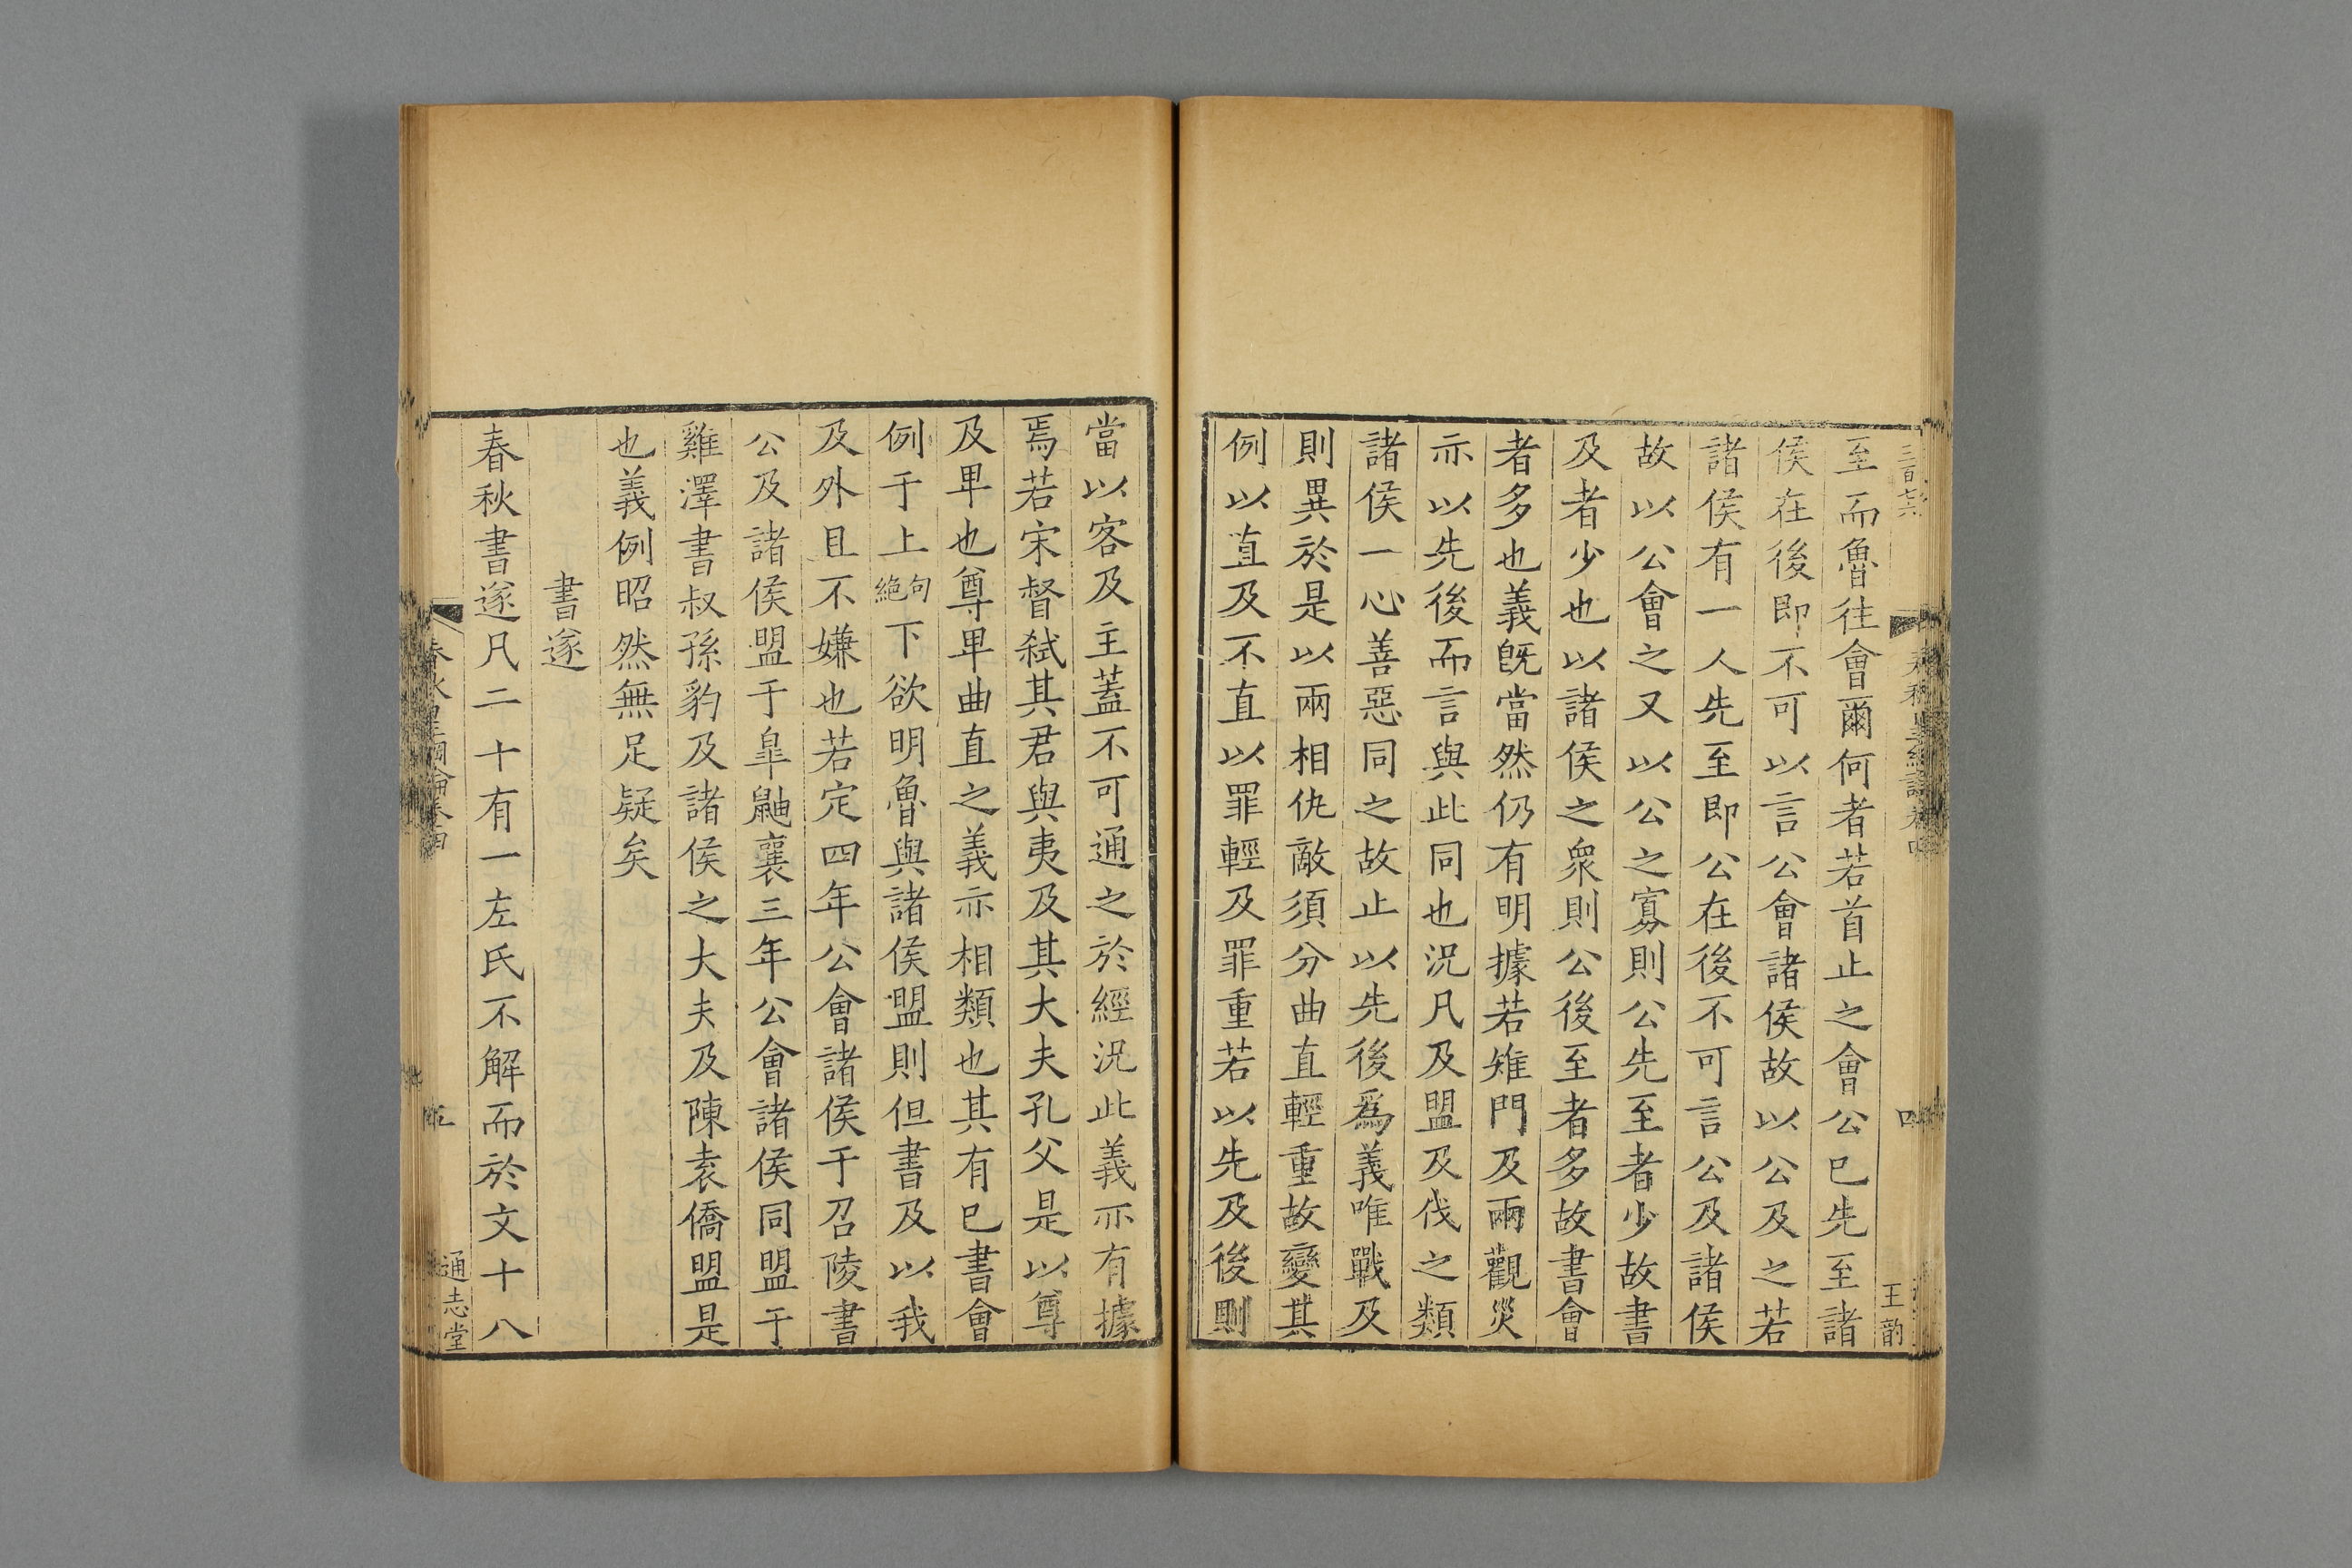 至而魯往會爾何者若首止之會公已先至諸
侯在後即不可以言公會諸侯故以公及之若
諸侯有一人先至即公在後不可言公及諸侯
故以公會之又以公之寡則公先至者少故書
及者少也以諸侯之衆則公後至者多故書會
者多也義旣當然仍有明據若雉門及兩觀災
亦以先後而言與此同也況凡及盟及伐之類
諸侯一心善惡同之故止以先後爲義唯戰及
則異於是以兩相仇敵須分曲直輕重故變其
例以直及不直以罪輕及罪重若以先及後則
四
王韵
當以客及主蓋不可通之於經況此義亦有據
焉若宋督弑其君與夷及其大夫孔父是以尊
及卑也尊卑曲直之義亦相類也其有已書會
例于上句絶下欲明魯與諸侯盟則但書及以我
及外且不嫌也若定四年公會諸侯于召陵書
公及諸侯盟于臯鼬襄三年公會諸侯同盟于
雞澤書叔孫豹及諸侯之大夫及陳袁僑盟是
也義例昭然無足疑矣
書遂
春秋書遂凡二十有一左氏不解而於文十八
通志堂